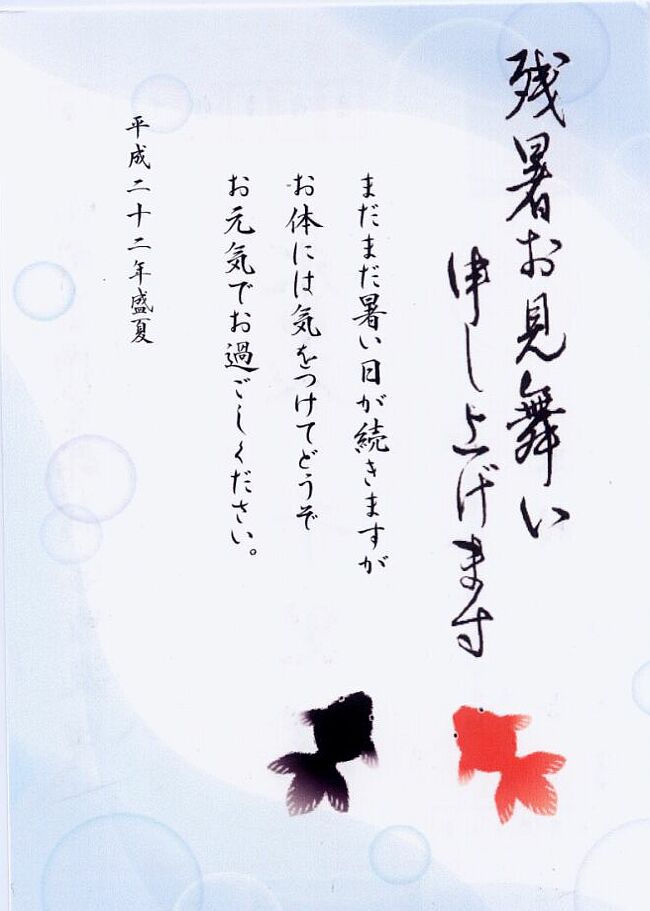 残暑お見舞い
申し上げます
まだまだ暑い日が続きますが
お体には気をつけてどうぞ
お元気でお過ごしください。
平成二十二年盛夏